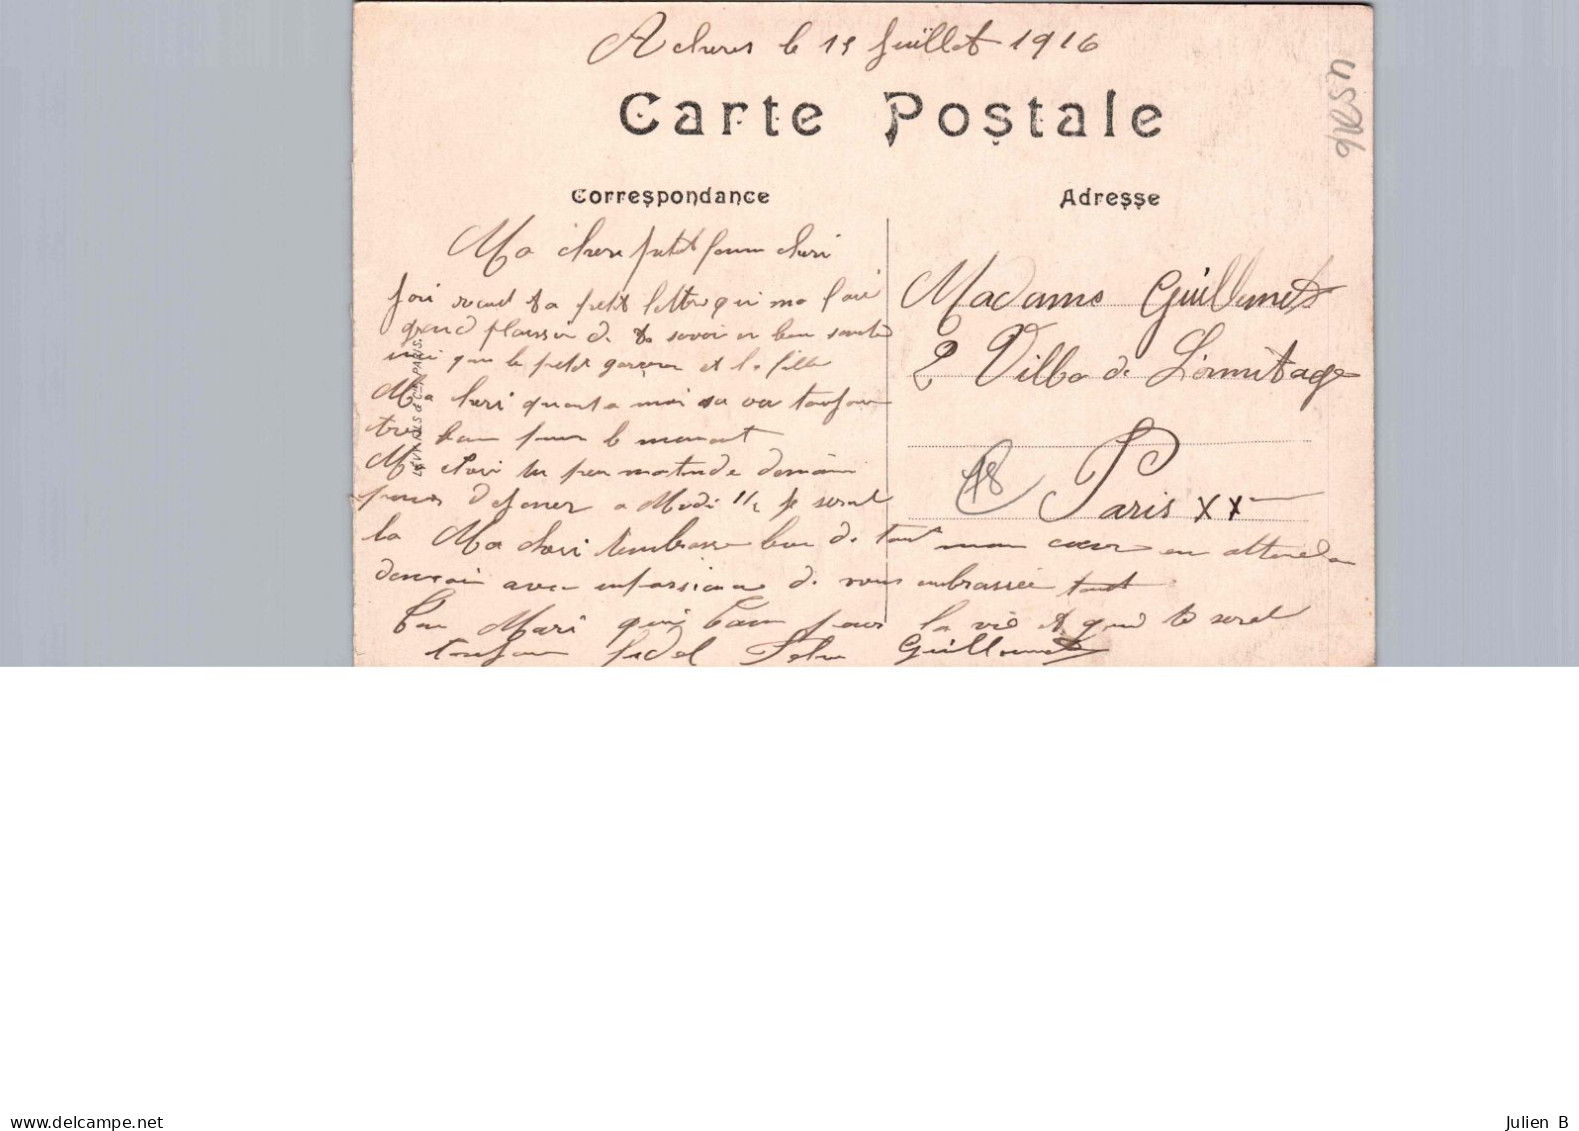 Acheres le 15 Juillet 1916
Carte Postale
Correspondance
Adresse
Ma chere petit femm cheri
Jai recud ta petit lettre qui ma fai
grand plaisir de te savoir en bon santé
insi que le petit garçon et la fille
Ma cheri quant a moi sa va toujour
tres bon pour le moment
Ma cheri tu peu matende demain
pour dejeuner a Medi 1/2 je serai
la Ma cheri tembrasse bien de tout mon coeur en attendan
demain avec inpassience de vous embrasser tout
Ton Mari qui taime pour la vie et qui te serat
toujour fidel Guillemet
Madame Guillemet
2 Villa de L'ermitage
Paris XX
18
LEVY FILS & Cie PARIS.
www.delcampe.net
Julien B